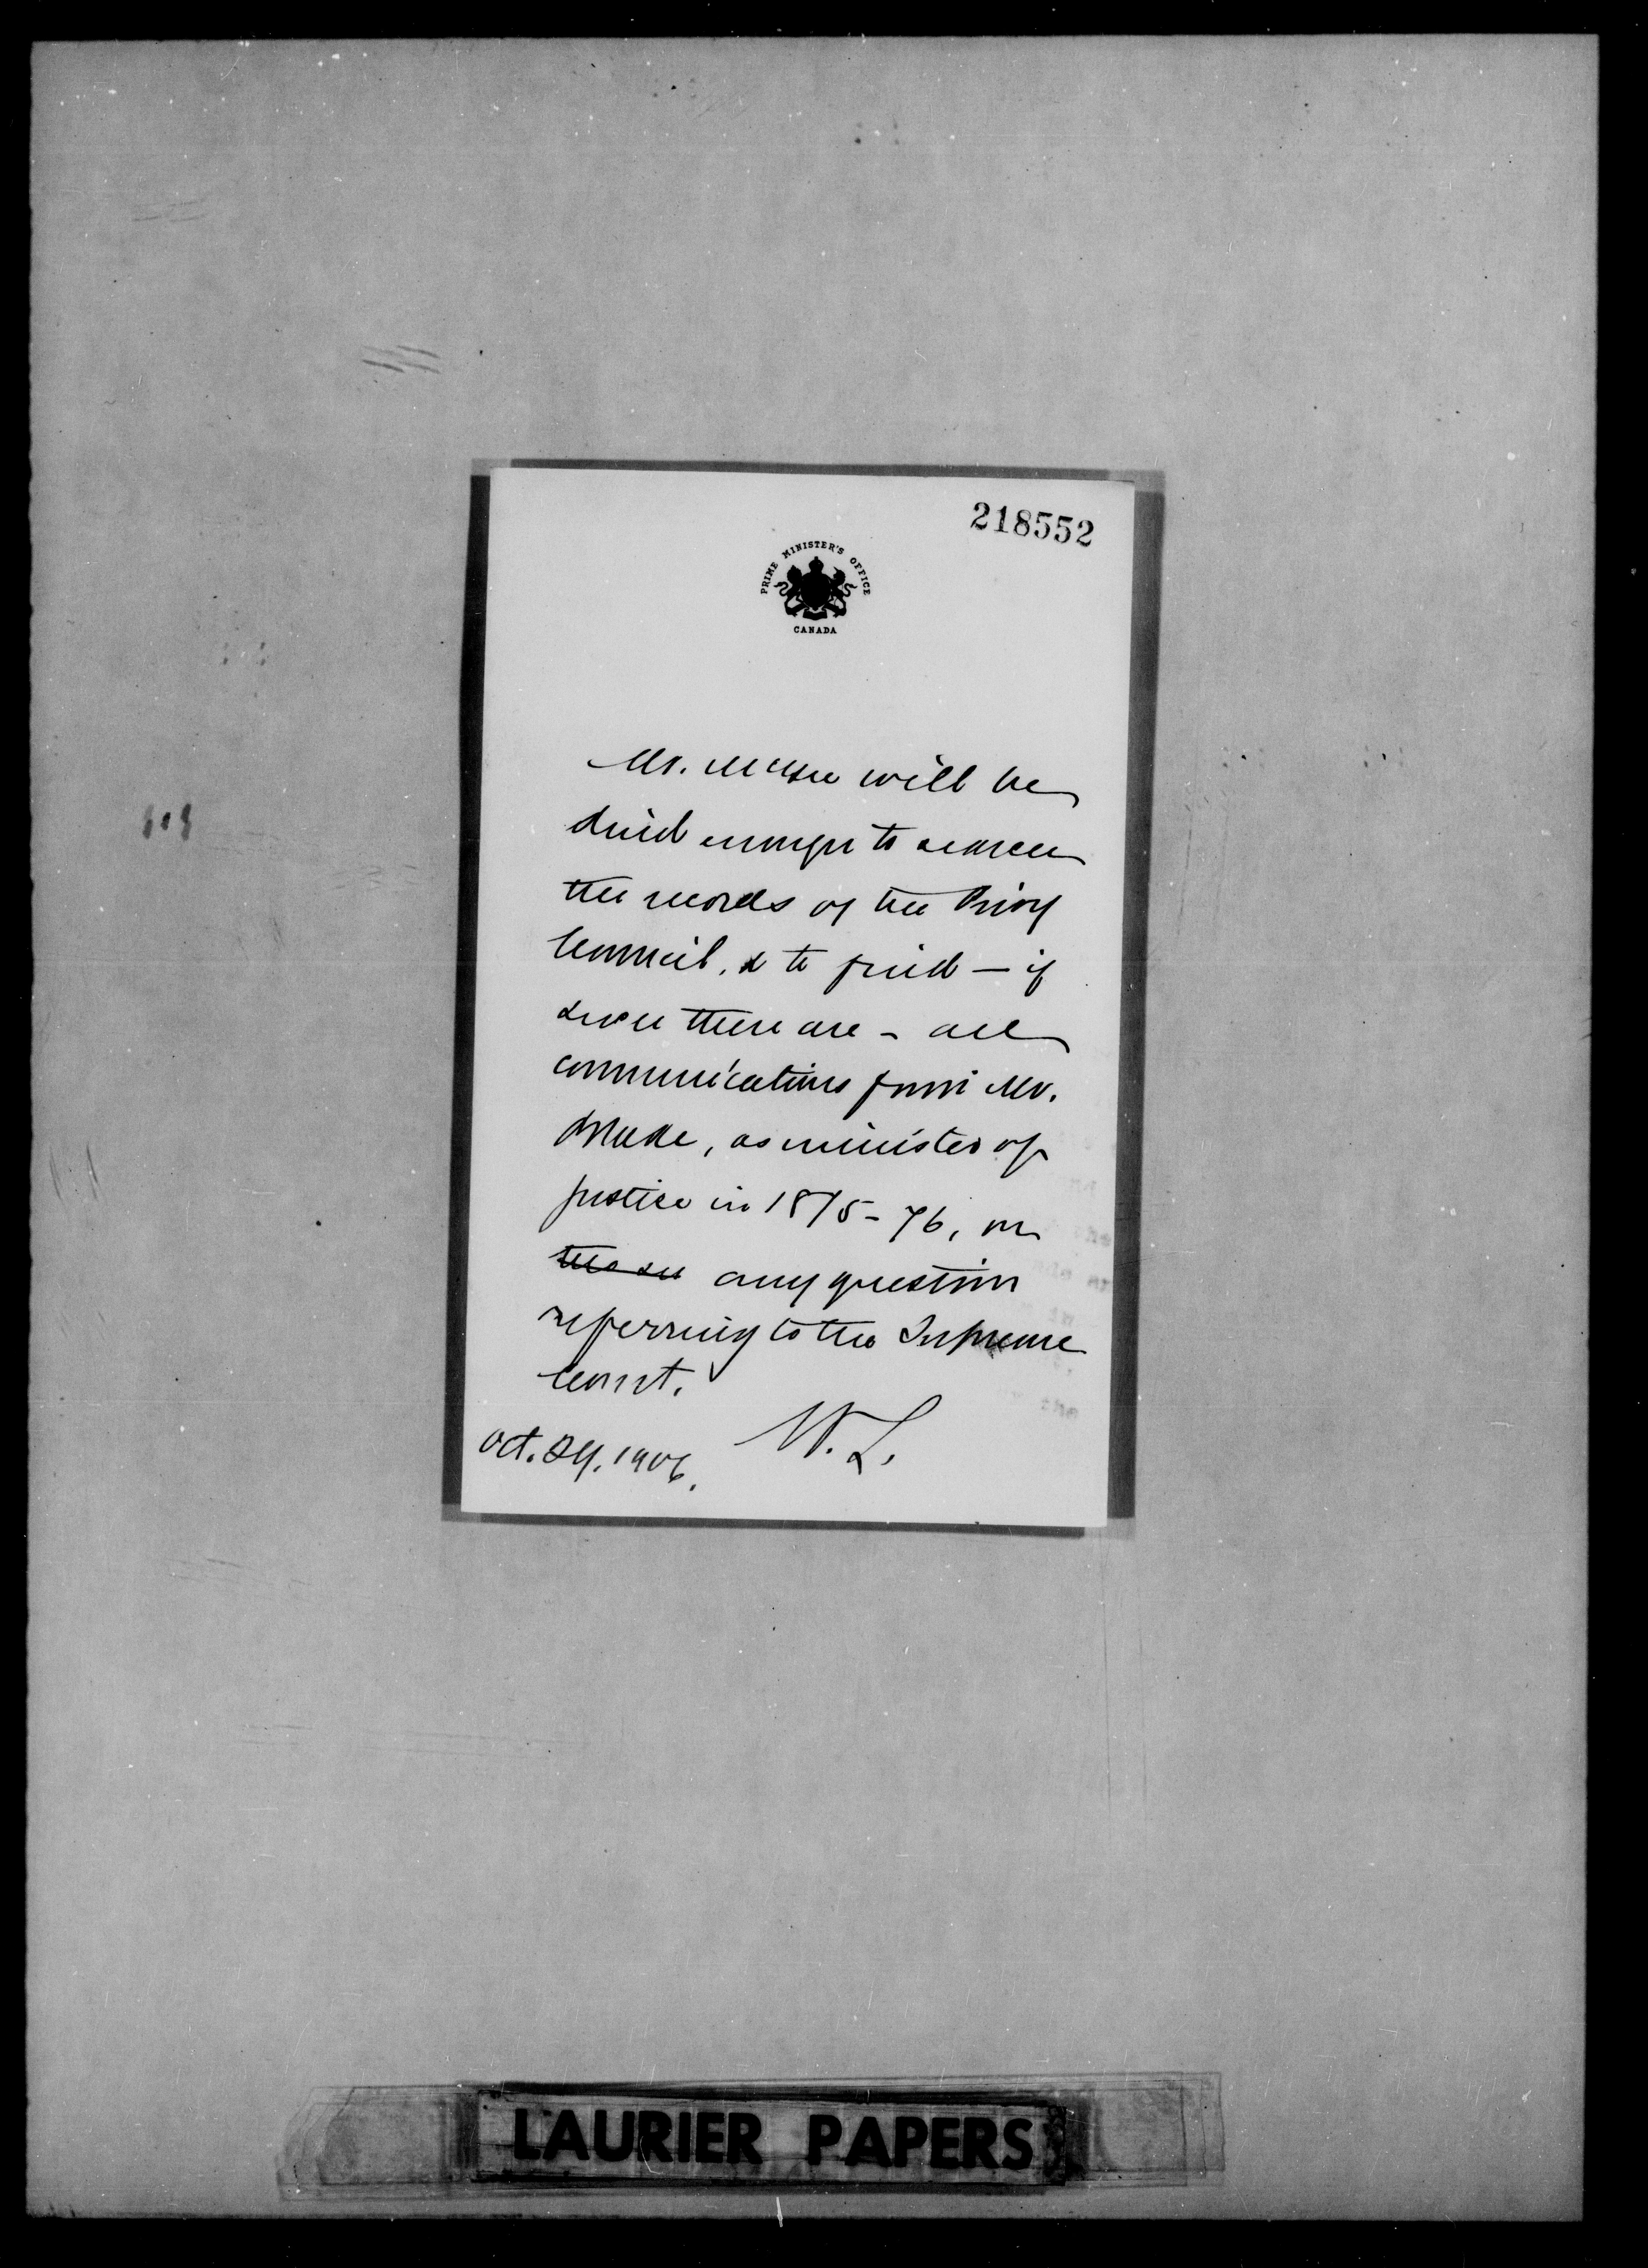 218552
PRIME MINISTER'S OFFICE
CANADA
Mr. McGee will be
kind enough to search
the records of the Privy
Council, & to find — if
such there are - all
communications from Mr.
Blake, as minister of
justice in 1875-76, on
any question
referring to the Supreme
Court.
W. L.
Oct. 24. 1906.
LAURIER PAPERS